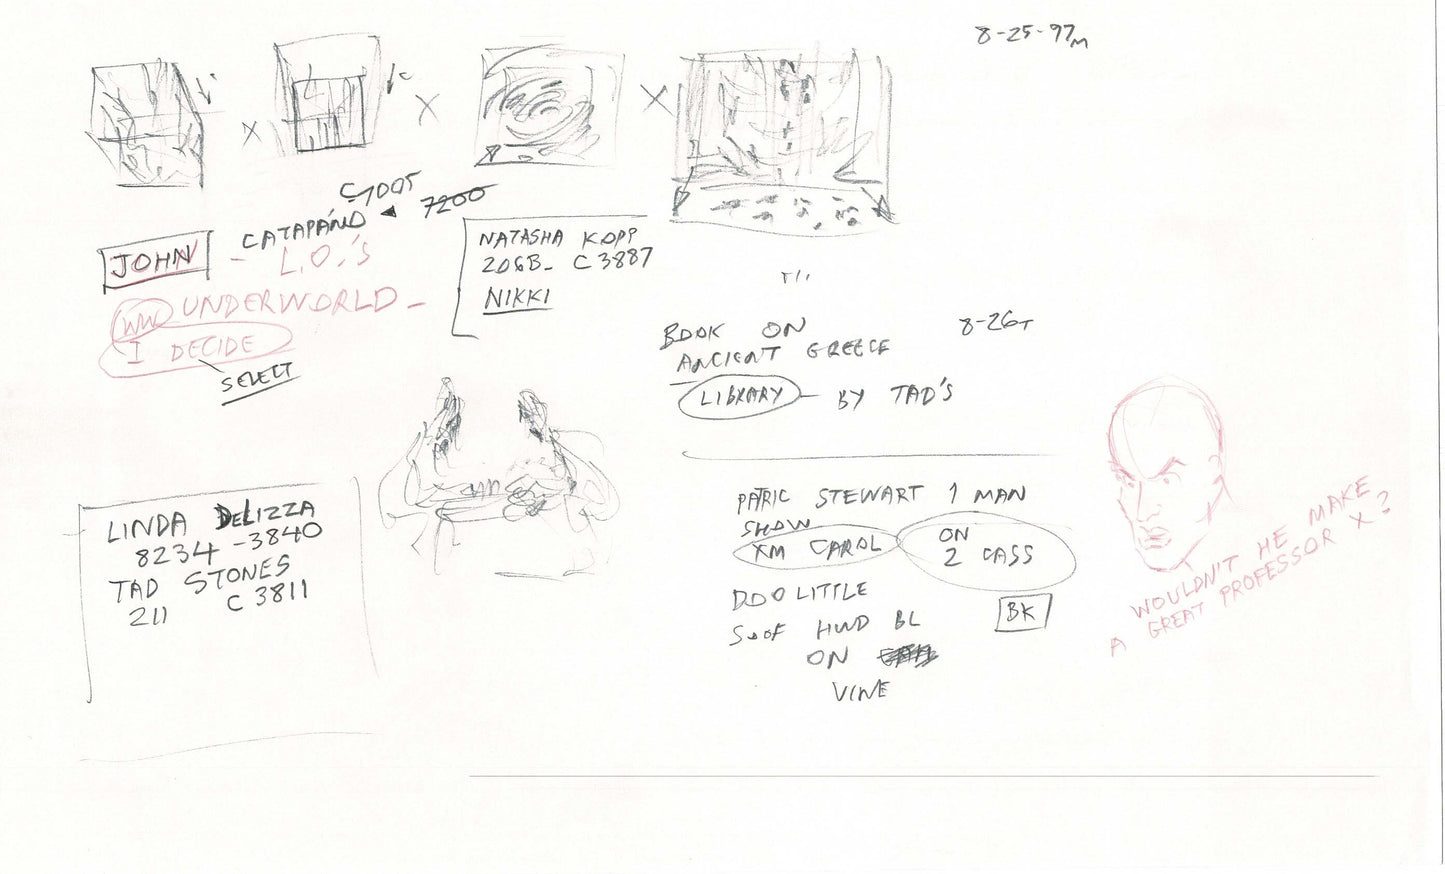 8-25-97M
C7005
CATAPANO ◄ 7200
JOHN - L.O.'S
WW UNDERWORLD -
I DECIDE
SELECT
NATASHA KOPP
206B- C3887
NIKKI
8-26T
BOOK ON
ANCIENT GREECE
LIBRARY - BY TAD'S
LINDA DELIZZA
8234 -3840
TAD STONES
211 C 3811
PATRIC STEWART 1 MAN
SHOW
XM CAROL ON
2 CASS
DOOLITTLE
S OF HWD BL
ON
VINE
BK
WOULDN'T HE MAKE
A GREAT PROFESSOR X?